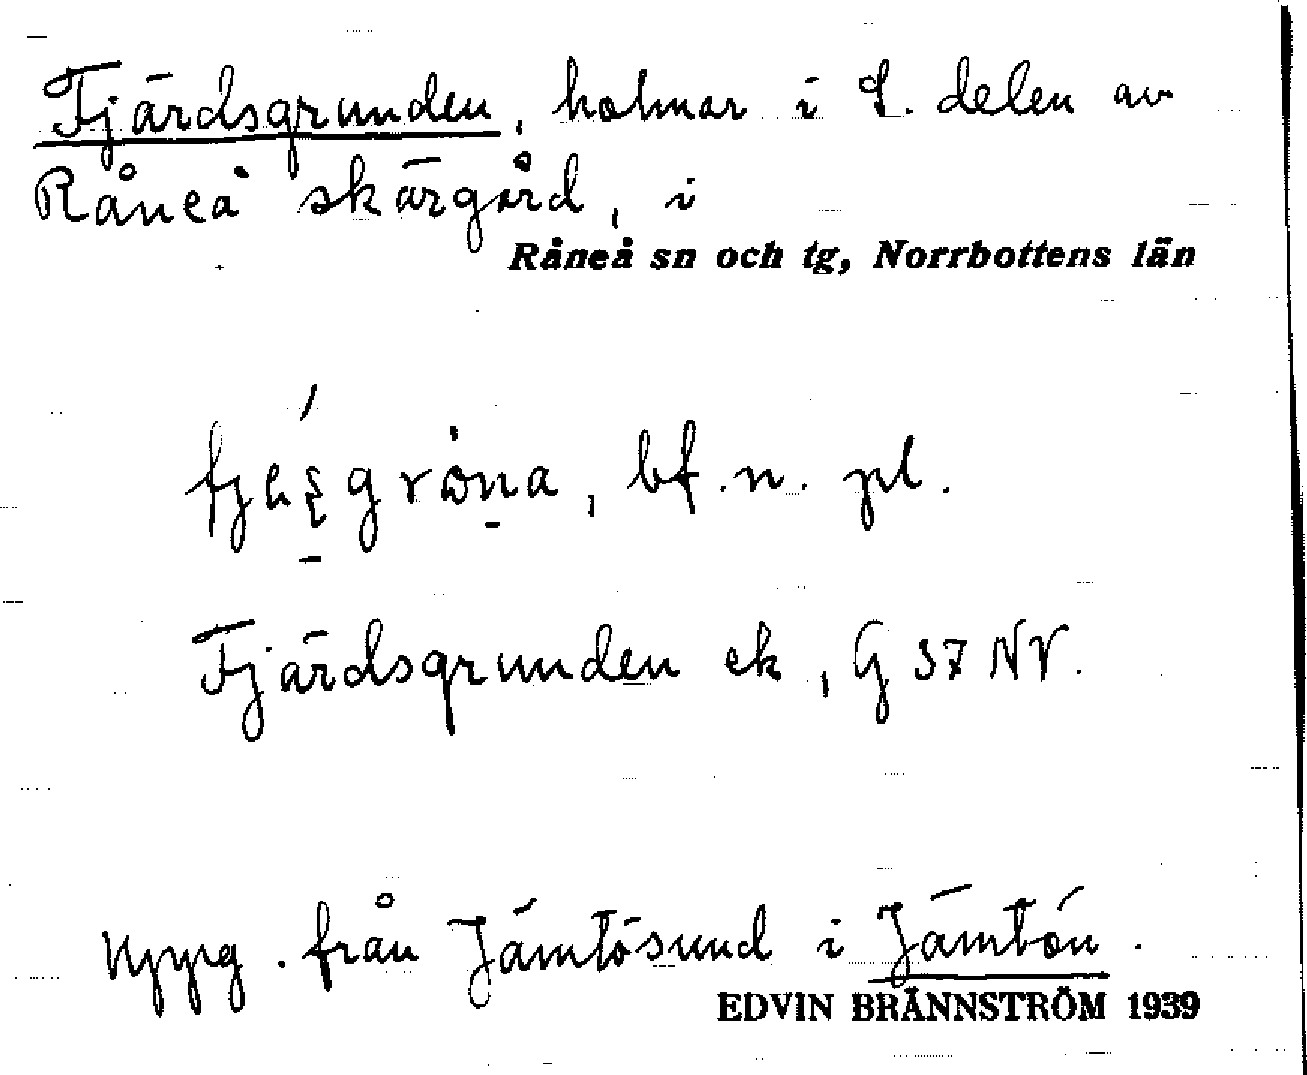 Fjärdsgrunden, holmar i S. delen av
Råneå skärgård, i
Råneå sn och tg, Norrbottens län
bf. n. pl.
Fjärdsgrunden ek, G 37 NV.
Uppg. från Jämtösund i Jämtön.
EDVIN BRÄNNSTRÖM 1939